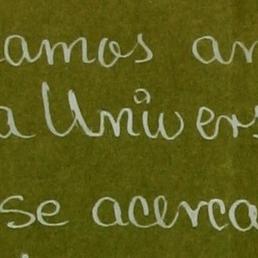 amos an
a Univers
se acerca